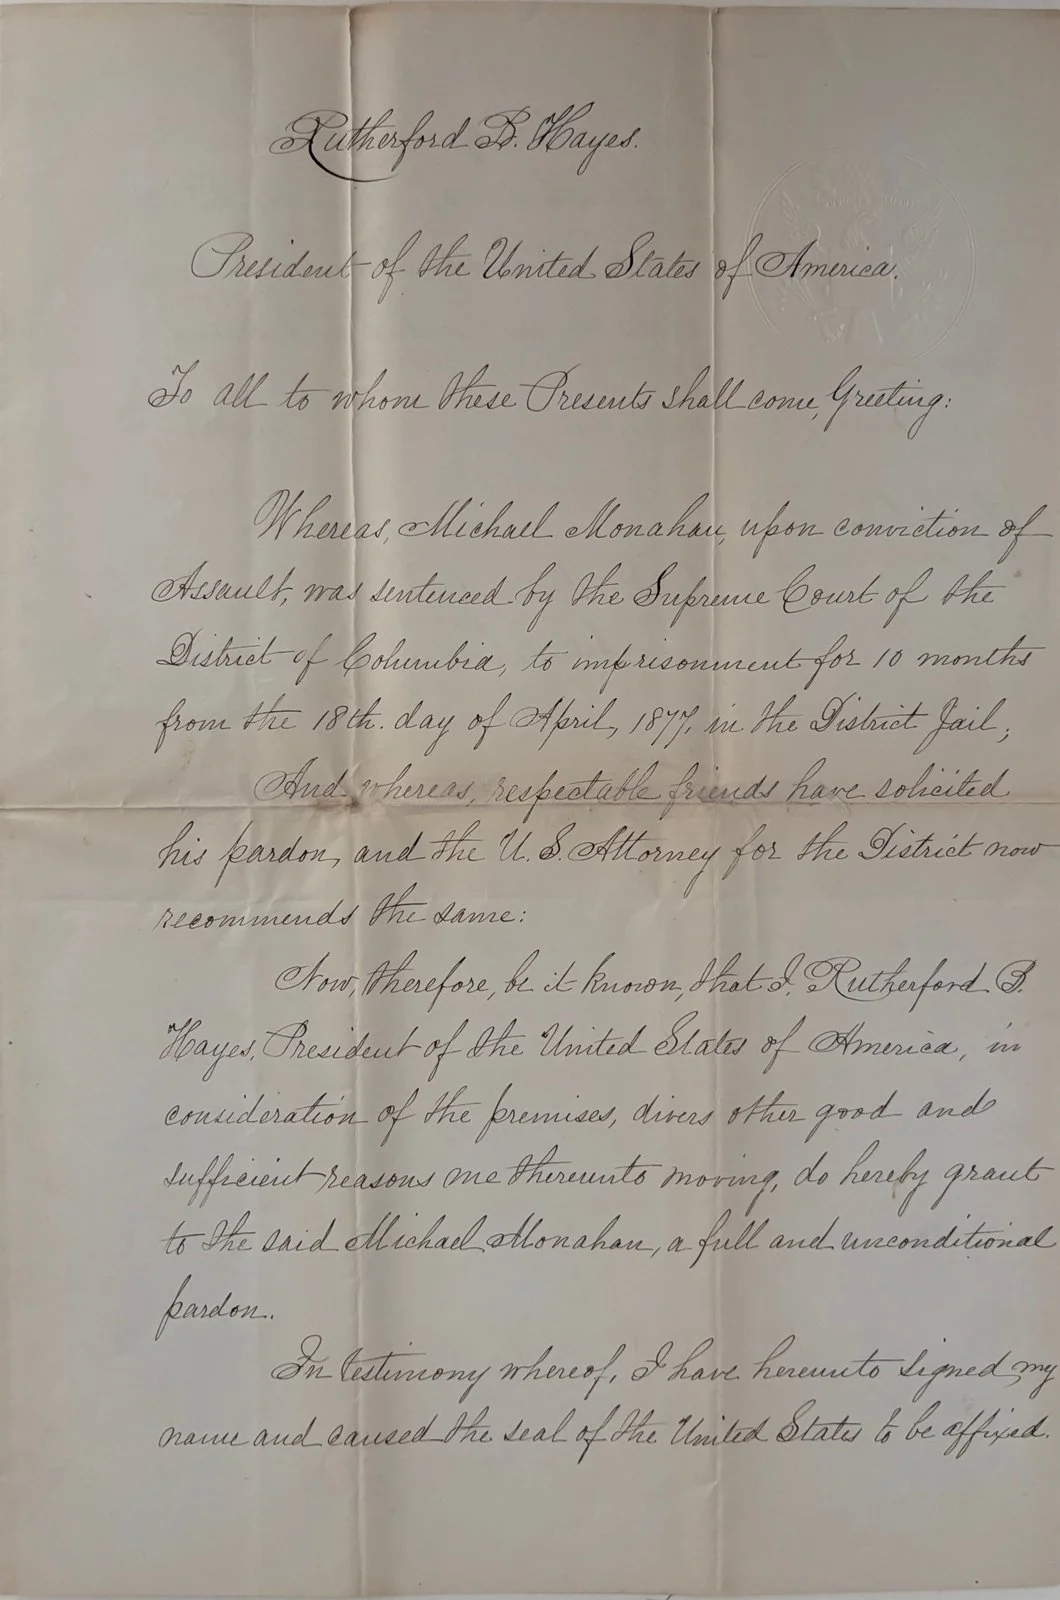 Rutherford B. Hayes.
President of the United States of America.
To all to whom these Presents shall come, Greeting:
Whereas, Michael Monahan, upon conviction of
Assault, was sentenced by the Supreme Court of the
District of Columbia, to imprisonment for 10 months
from the 18th. day of April, 1877, in the District Jail;
And whereas, respectable friends have solicited
his pardon, and the U. S. Attorney for the District now
recommends the same:
Now, therefore, be it known, that I, Rutherford B.
Hayes, President of the United States of America, in
consideration of the premises, divers other good and
sufficient reasons me thereunto moving, do hereby grant
to the said Michael Monahan, a full and unconditional
pardon.
In testimony whereof, I have hereunto signed my
name and caused the seal of the United States to be affixed.